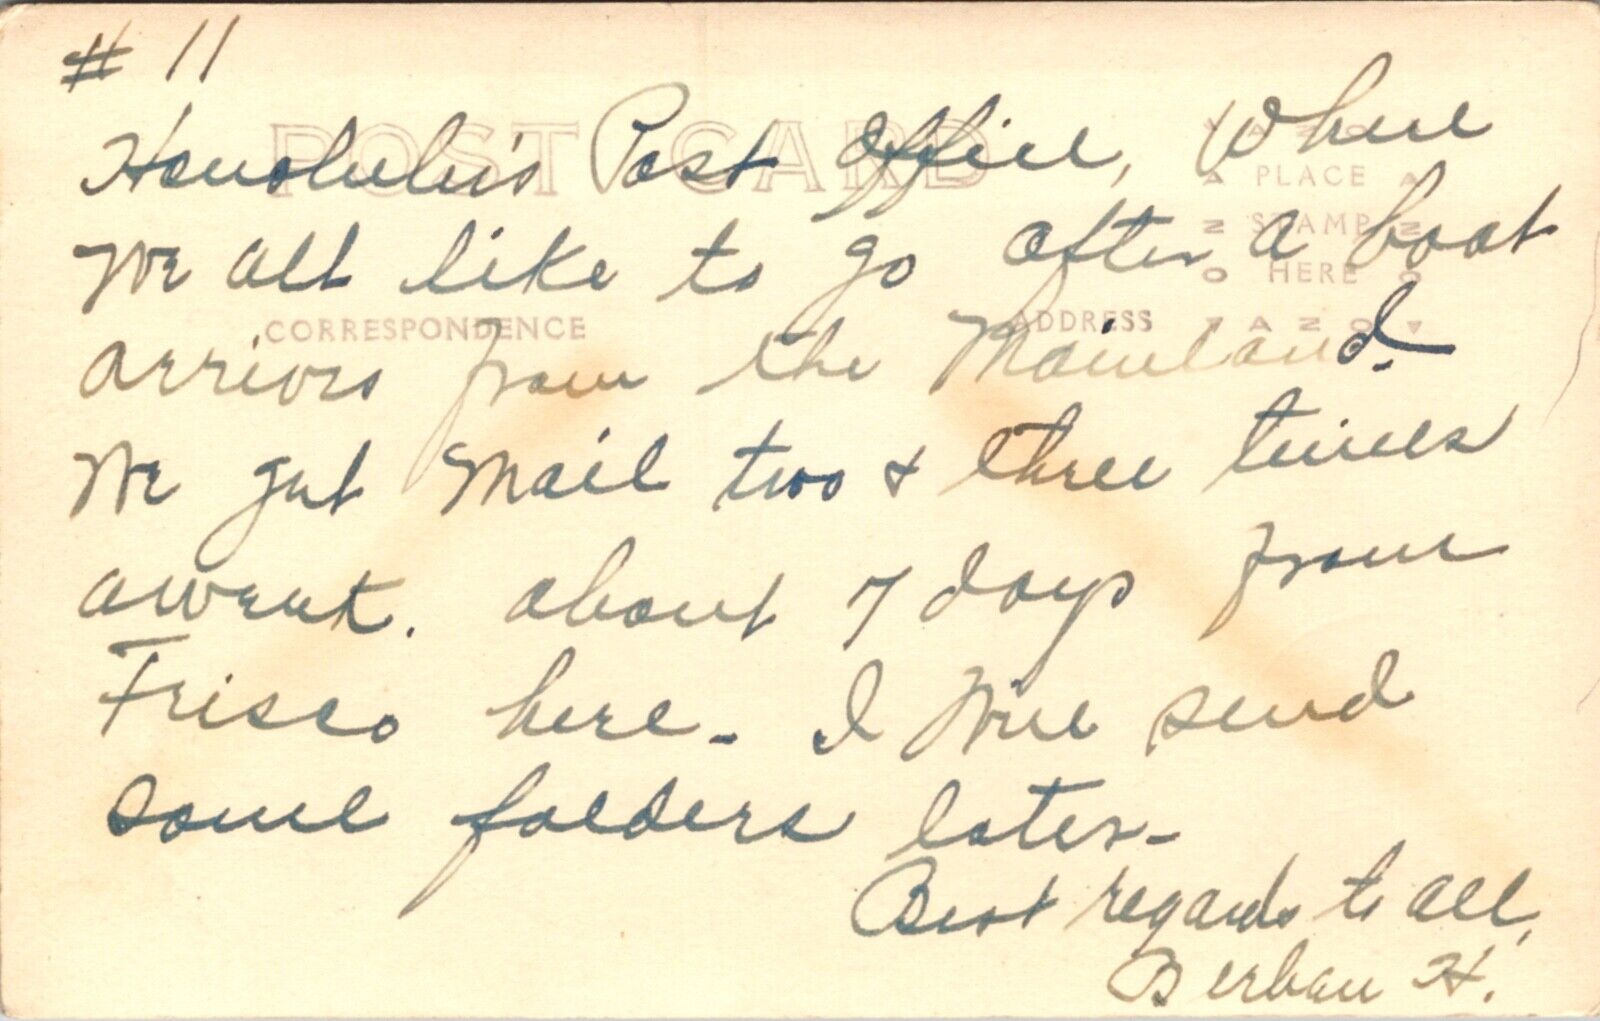 # 11
Honolulu's Post Office, Where
We all like to go after a boat
arrives from the Mainland.
We get Mail two & three times
a week. about 7 days from
Frisco here - I Will send
some folders later -
Best regards to all,
H.
POST CARD
CORRESPONDENCE
ADDRESS
PLACE
STAMP
HERE
AZO